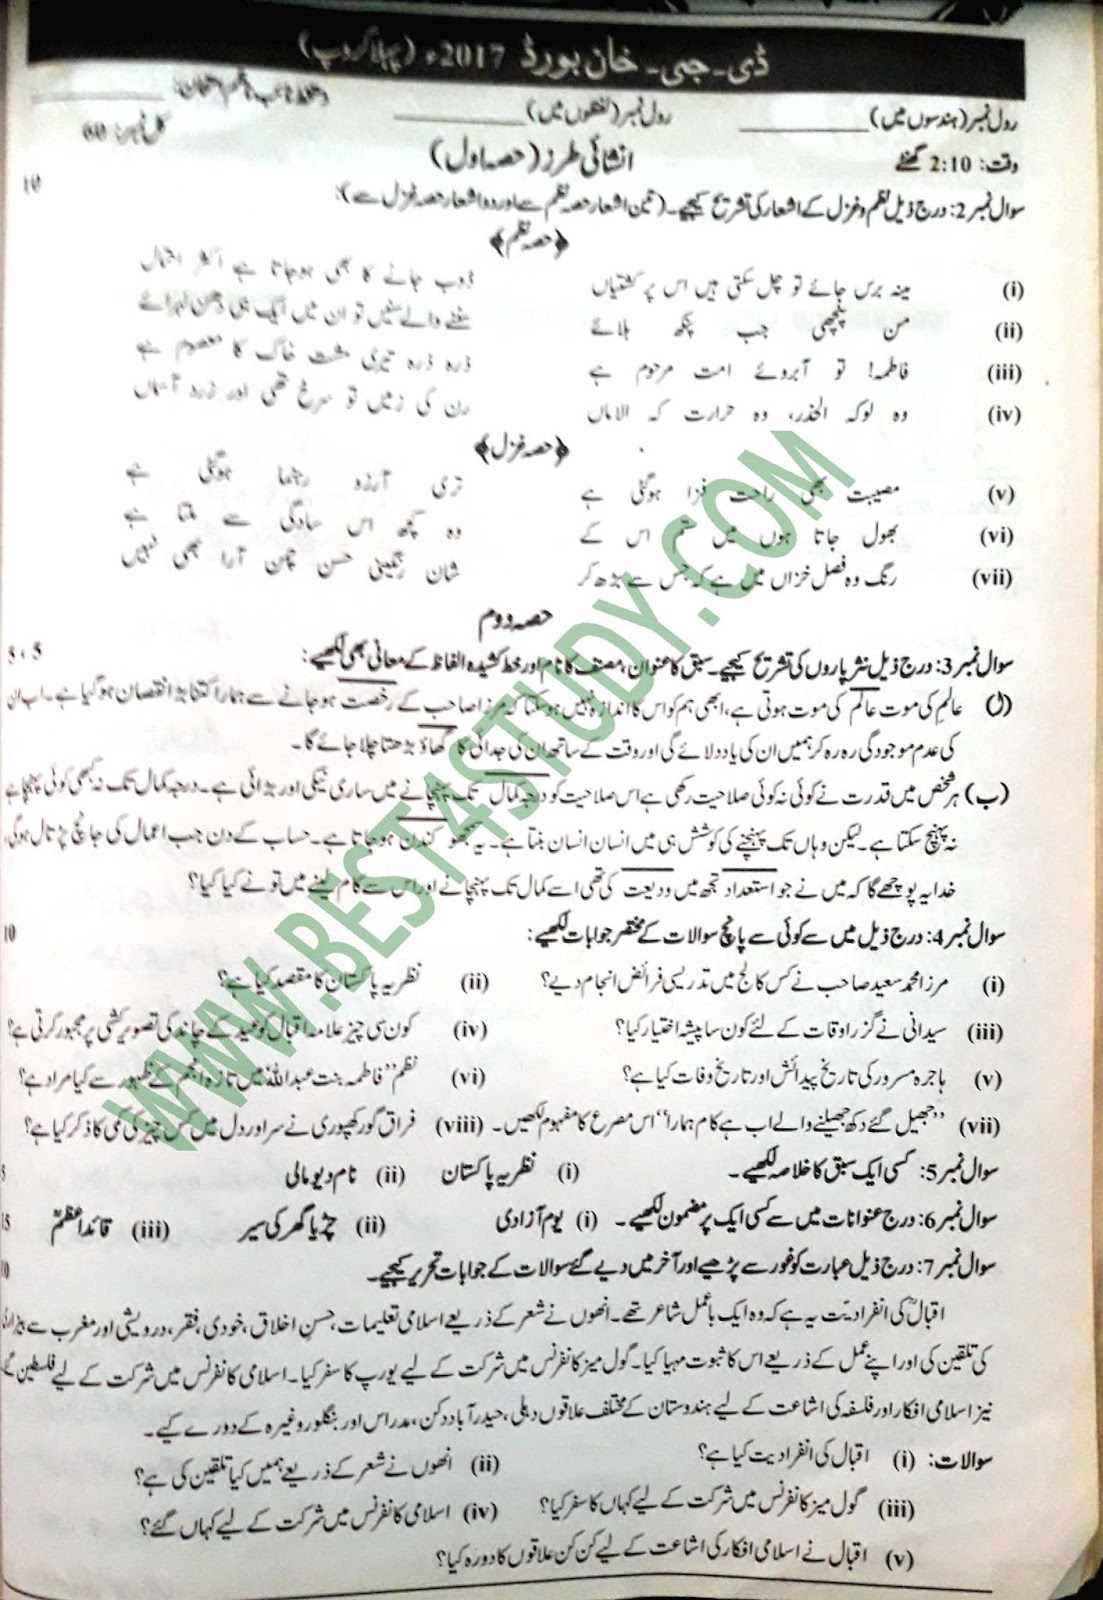 ڈی۔جی۔ خان بورڈ 2017ء (پہلا گروپ)
رول نمبر (ہندسوں میں) ____________ رول نمبر (لفظوں میں) ____________ دستخط نائب ناظم امتحان: ____________
وقت: 2:10 گھنٹے انشائی طرز (حصہ اول) کل نمبر: 60
سوال نمبر 2: درج ذیل نظم و غزل کے اشعار کی تشریح کیجیے۔ (تین اشعار حصہ نظم سے اور دو اشعار حصہ غزل سے): 10
﴿حصہ نظم﴾
(i) مینہ برس جائے تو چل سکتی ہیں اس پر کشتیاں ڈوب جانے کا بھی ہو جاتا ہے اکثر احتمال
(ii) من پنچھی جب پنکھ ہلائے سننے والے سنیں تو ان میں ایک ہی دھن لہرائے
(iii) فاطمہ! تو آبروئے امت مرحوم ہے ذرہ ذرہ تیری مشت خاک کا معصوم ہے
(iv) وہ لوکہ الحذر، وہ حرارت کہ الاماں رن کی زمیں تو سرخ تھی اور زرد آسماں
﴿حصہ غزل﴾
(v) مصیبت بھی راحت فزا ہوگئی ہے تری آرزو رہنما ہوگئی ہے
(vi) بھول جاتا ہوں میں ستم اس کے وہ کچھ اس سادگی سے ملتا ہے
(vii) رنگ وہ فصل خزاں میں ہے کہ جس سے بڑھ کر شان رنگینی حسن چمن آرا بھی نہیں
حصہ دوم
سوال نمبر 3: درج ذیل نثر پاروں کی تشریح کیجیے۔ سبق کا عنوان، مصنف کا نام اور خط کشیدہ الفاظ کے معانی بھی لکھیے: 5،5
(ا) عالم کی موت عالم کی موت ہوتی ہے، ابھی ہم کو اس کا اندازہ نہیں ہوسکتا کہ مرزا صاحب کے رخصت ہو جانے سے ہمارا کتنا بڑا نقصان ہو گیا ہے۔ اب ان
کی عدم موجودگی رہ رہ کر ہمیں ان کی یاد دلائے گی اور وقت کے ساتھ ان کی جدائی کا گھاؤ بڑھتا چلا جائے گا۔
(ب) ہر شخص میں قدرت نے کوئی نہ کوئی صلاحیت رکھی ہے اس صلاحیت کو درجہ کمال تک پہنچانے میں ساری نیکی اور بڑائی ہے۔ درجہ کمال تک نہ کبھی کوئی پہنچا ہے
نہ پہنچ سکتا ہے۔ لیکن وہاں تک پہنچنے کی کوشش ہی میں انسان انسان بنتا ہے۔ یہ سمجھو کندن ہو جاتا ہے۔ حساب کے دن جب اعمال کی جانچ پڑتال ہوگی
خدا یہ پوچھے گا کہ میں نے جو استعداد تجھ میں ودیعت کی تھی اسے کمال تک پہنچانے اور اس سے کام لینے میں تو نے کیا کیا؟
سوال نمبر 4: درج ذیل میں سے کوئی سے پانچ سوالات کے مختصر جوابات لکھیے: 10
(i) مرزا محمد سعید صاحب نے کس کالج میں تدریسی فرائض انجام دیے؟ (ii) نظریہ پاکستان کا مقصد کیا ہے؟
(iii) سیدانی نے گزر اوقات کے لئے کون سا پیشہ اختیار کیا؟ (iv) کون سی چیز علامہ اقبال کو عید کے چاند کی تصویر کشی پر مجبور کرتی ہے؟
(v) ہاجرہ مسرور کی تاریخ پیدائش اور تاریخ وفات کیا ہے؟ (vi) نظم "فاطمہ بنت عبداللہ" میں تازہ انجم کے ظہور سے کیا مراد ہے؟
(vii) "جھیل گئے دکھ جھیلنے والے اب ہے کام ہمارا" اس مصرع کا مفہوم لکھیں۔ (viii) فراق گورکھپوری نے سر اور دل میں کس چیز کی کمی کا ذکر کیا ہے؟
سوال نمبر 5: کسی ایک سبق کا خلاصہ لکھیے۔ (i) نظریہ پاکستان (ii) نام دیو مالی 5
سوال نمبر 6: درج عنوانات میں سے کسی ایک پر مضمون لکھیے۔ (i) یوم آزادی (ii) چڑیا گھر کی سیر (iii) قائد اعظمؒ 15
سوال نمبر 7: درج ذیل عبارت کو غور سے پڑھیے اور آخر میں دیے گئے سوالات کے جوابات تحریر کیجیے۔ 10
اقبالؒ کی انفرادیت یہ ہے کہ وہ ایک باعمل شاعر تھے۔ انھوں نے شعر کے ذریعے اسلامی تعلیمات، حسن اخلاق، خودی، فقر، درویشی اور مغرب سے بیزاری
کی تلقین کی اور اپنے عمل کے ذریعے اس کا ثبوت مہیا کیا۔ گول میز کانفرنس میں شرکت کے لیے یورپ کا سفر کیا۔ اسلامی کانفرنس میں شرکت کے لیے فلسطین گئے
نیز اسلامی افکار اور فلسفہ کی اشاعت کے لیے ہندوستان کے مختلف علاقوں دہلی، حیدرآباد دکن، مدراس اور بنگلور وغیرہ کے دورے کیے۔
سوالات: (i) اقبال کی انفرادیت کیا ہے؟ (ii) انھوں نے شعر کے ذریعے ہمیں کیا تلقین کی ہے؟
(iii) گول میز کانفرنس میں شرکت کے لیے کہاں کا سفر کیا؟ (iv) اسلامی کانفرنس میں شرکت کے لیے کہاں گئے؟
(v) اقبال نے اسلامی افکار کی اشاعت کے لیے کن کن علاقوں کا دورہ کیا؟
WWW.BEST4STUDY.COM